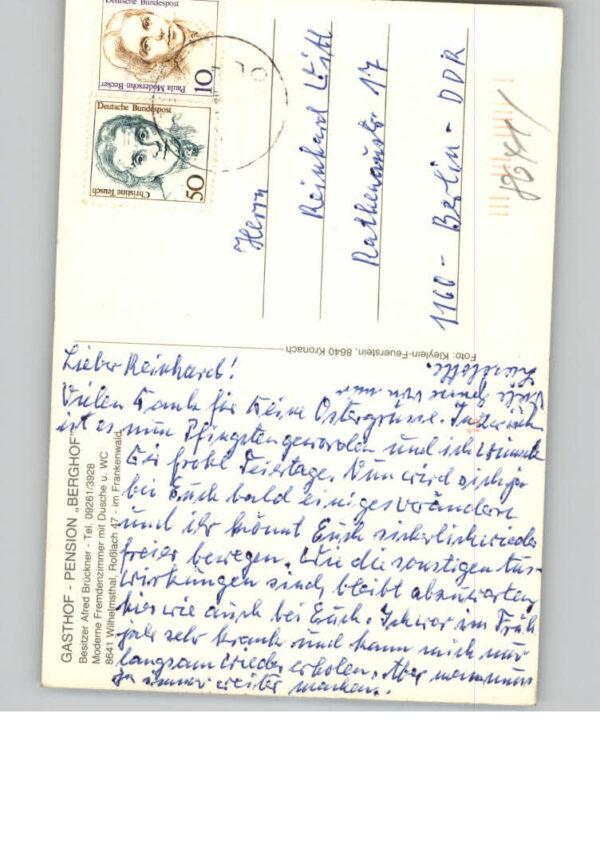 Deutsche Bundespost
Paula Modersohn-Becker
10
Deutsche Bundespost
Christine Teusch
50
Herrn
Reinhard
Rathenaustr 17
1160 - Berlin - DDR
Foto: Kleylein-Feuerstein, 8640 Kronach
GASTHOF - PENSION „BERGHOF"
Besitzer Alfred Brückner - Tel. 09261/3928
Moderne Fremdenzimmer mit Dusche u. WC
8641 Wilhelmsthal, Roßlach 47 - im Frankenwald
Lieber Reinhard!
Vielen Dank für Deine Ostergrüsse. Inzwischen
ist es nun Pfingsten geworden und ich wünsche
Dir frohe Feiertage. Nun wird sich ja
bei Euch bald einiges verändern
und ihr könnt Euch sicherlich wieder
freier bewegen. Wie die sonstigen Aus-
wirkungen sind, bleibt abzuwarten,
hier wie auch bei Euch. Ich war im Früh
jahr sehr krank und kann mich nur
langsam wieder erholen. Aber man muss
ja immer weiter machen.
Viele von
Lieselotte.